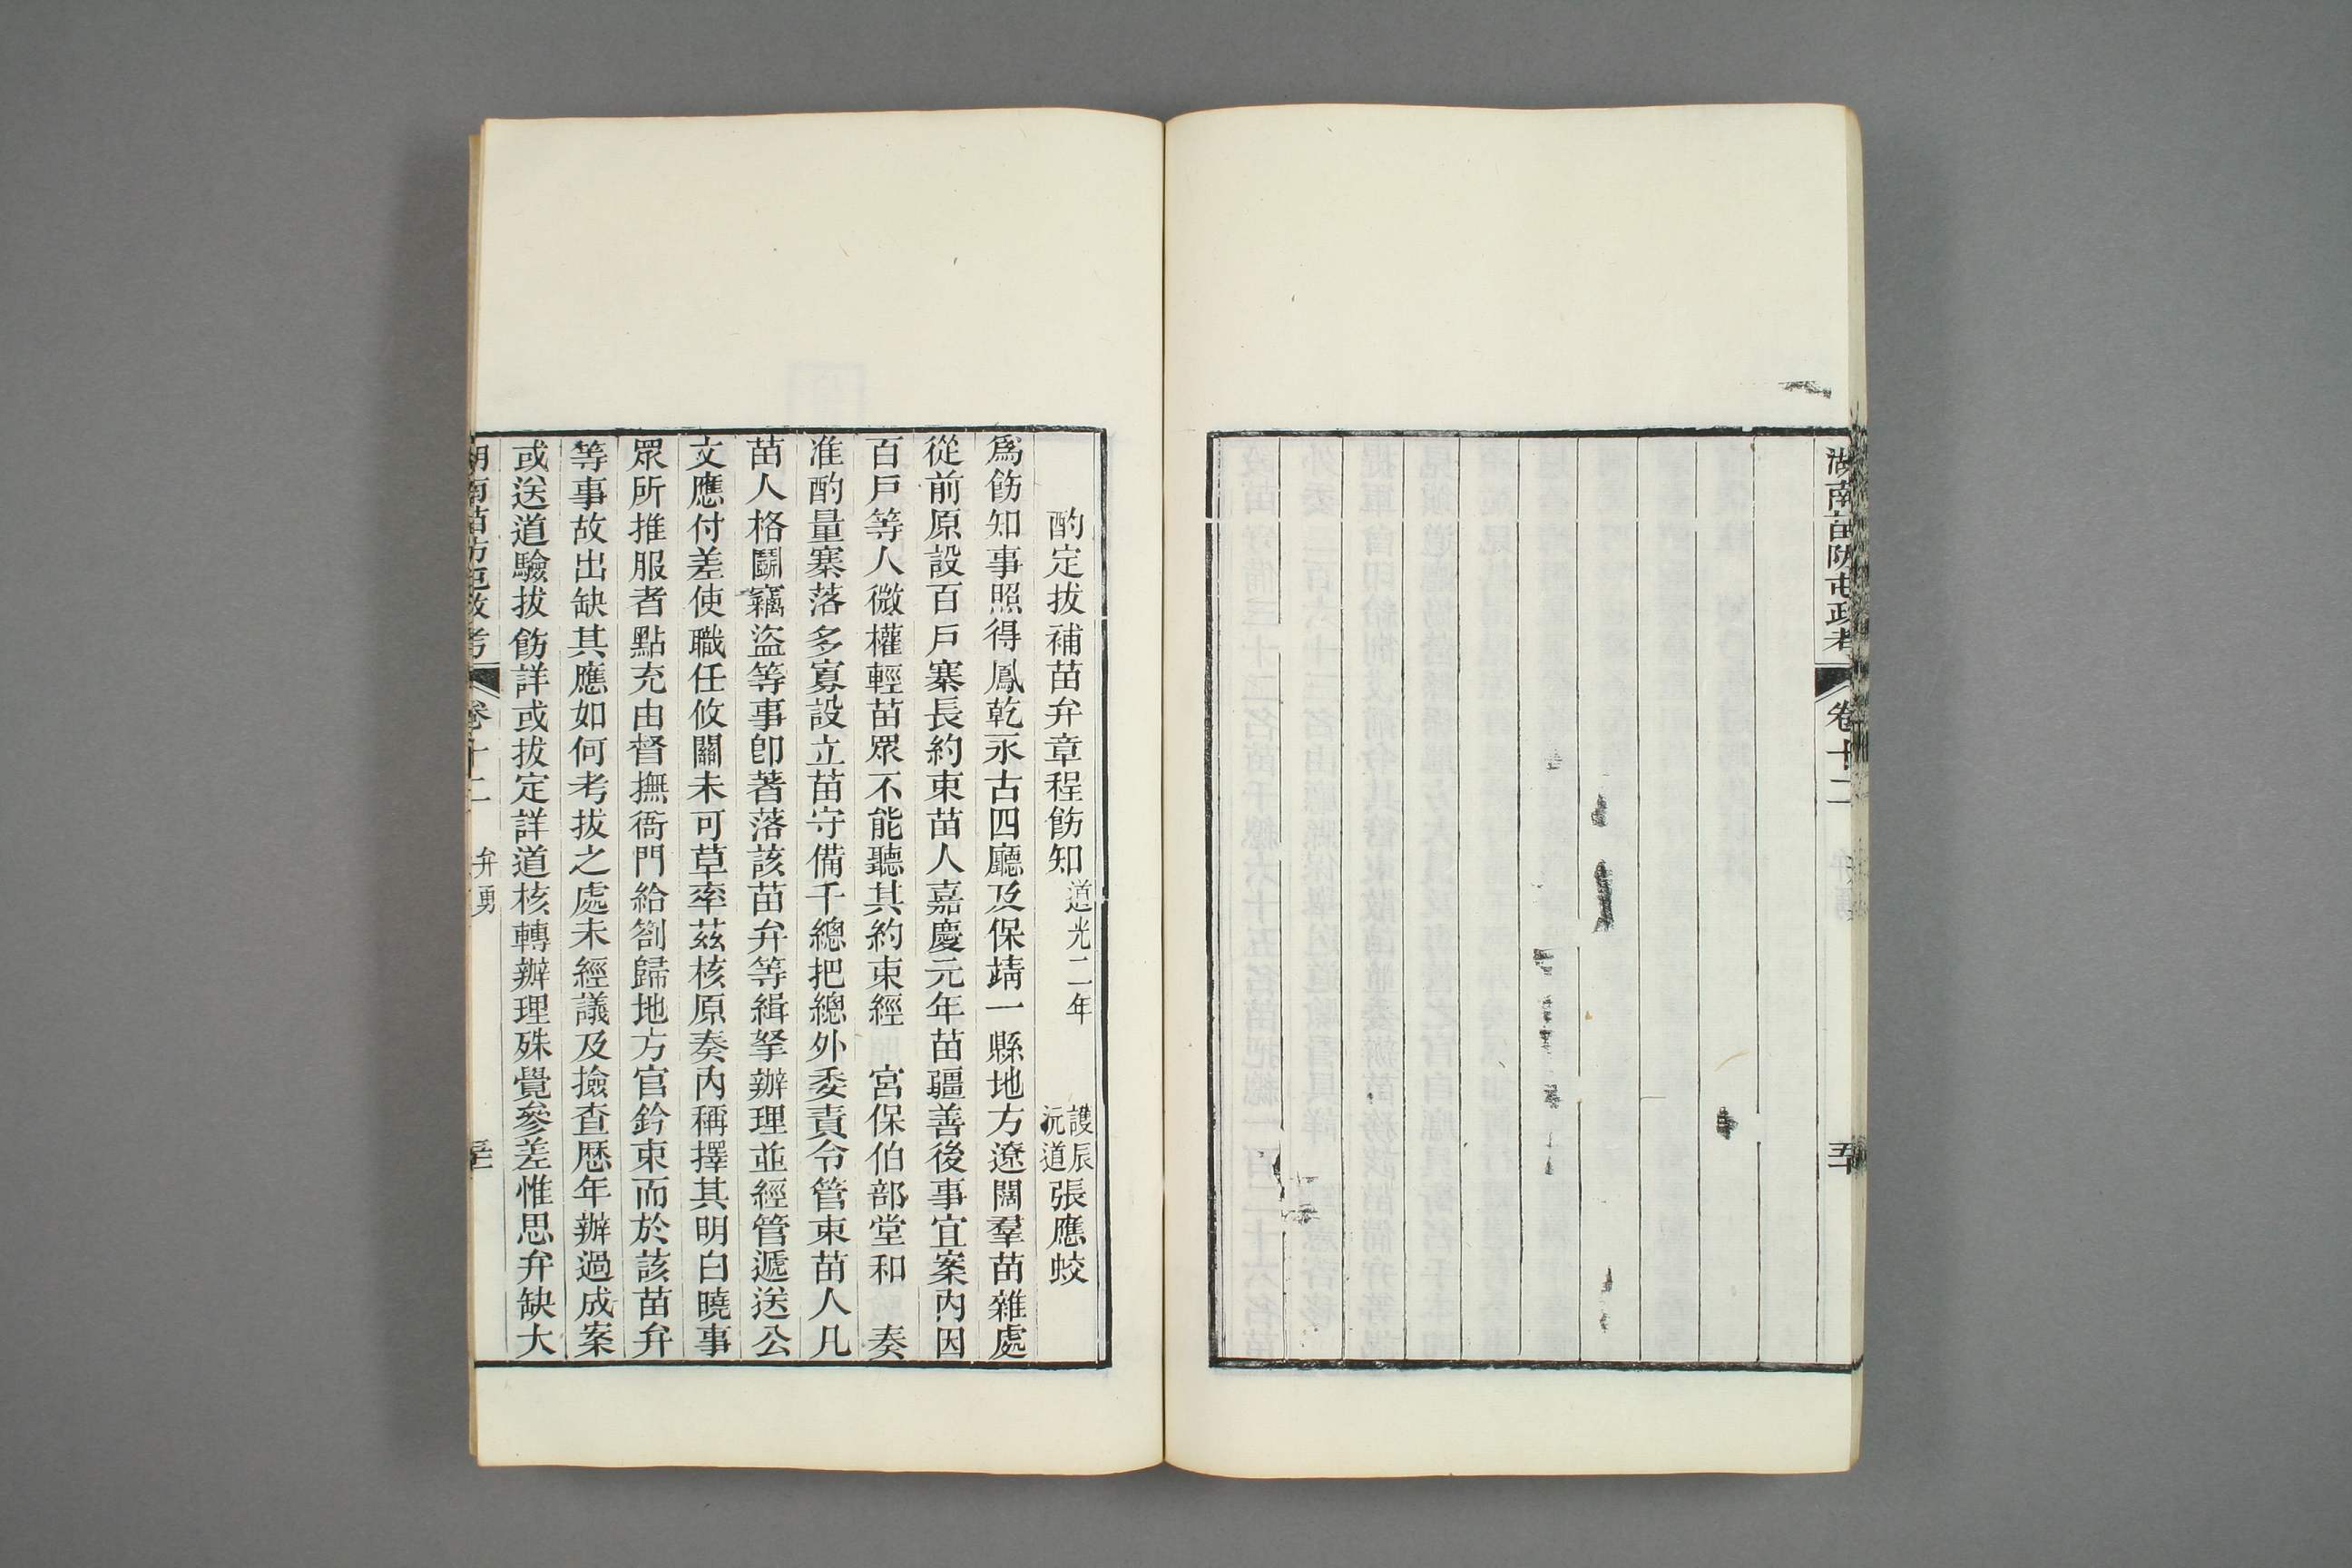 湖南苗防屯政考
卷十二
酌定拔補苗弁章程飭知 道光二年 護辰沅道張應蛟
爲飭知事照得鳳乾永古四廳及保靖一縣地方遼闊羣苗雜處
從前原設百戶寨長約束苗人嘉慶元年苗疆善後事宜案內因
百戶等人微權輕苗眾不能聽其約束經 宮保伯部堂和 奏
准酌量寨落多寡設立苗守備千總把總外委責令管束苗人凡
苗人格鬬竊盜等事卽著落該苗弁等緝拏辦理並經管遞送公
文應付差使職任攸關未可草率茲核原奏內稱擇其明白曉事
眾所推服者點充由督撫衙門給劄歸地方官鈐束而於該苗弁
等事故出缺其應如何考拔之處未經議及撿查歷年辦過成案
或送道驗拔飭詳或拔定詳道核轉辦理殊覺參差惟思弁缺大
湖南苗防屯政考
卷十二
弁勇